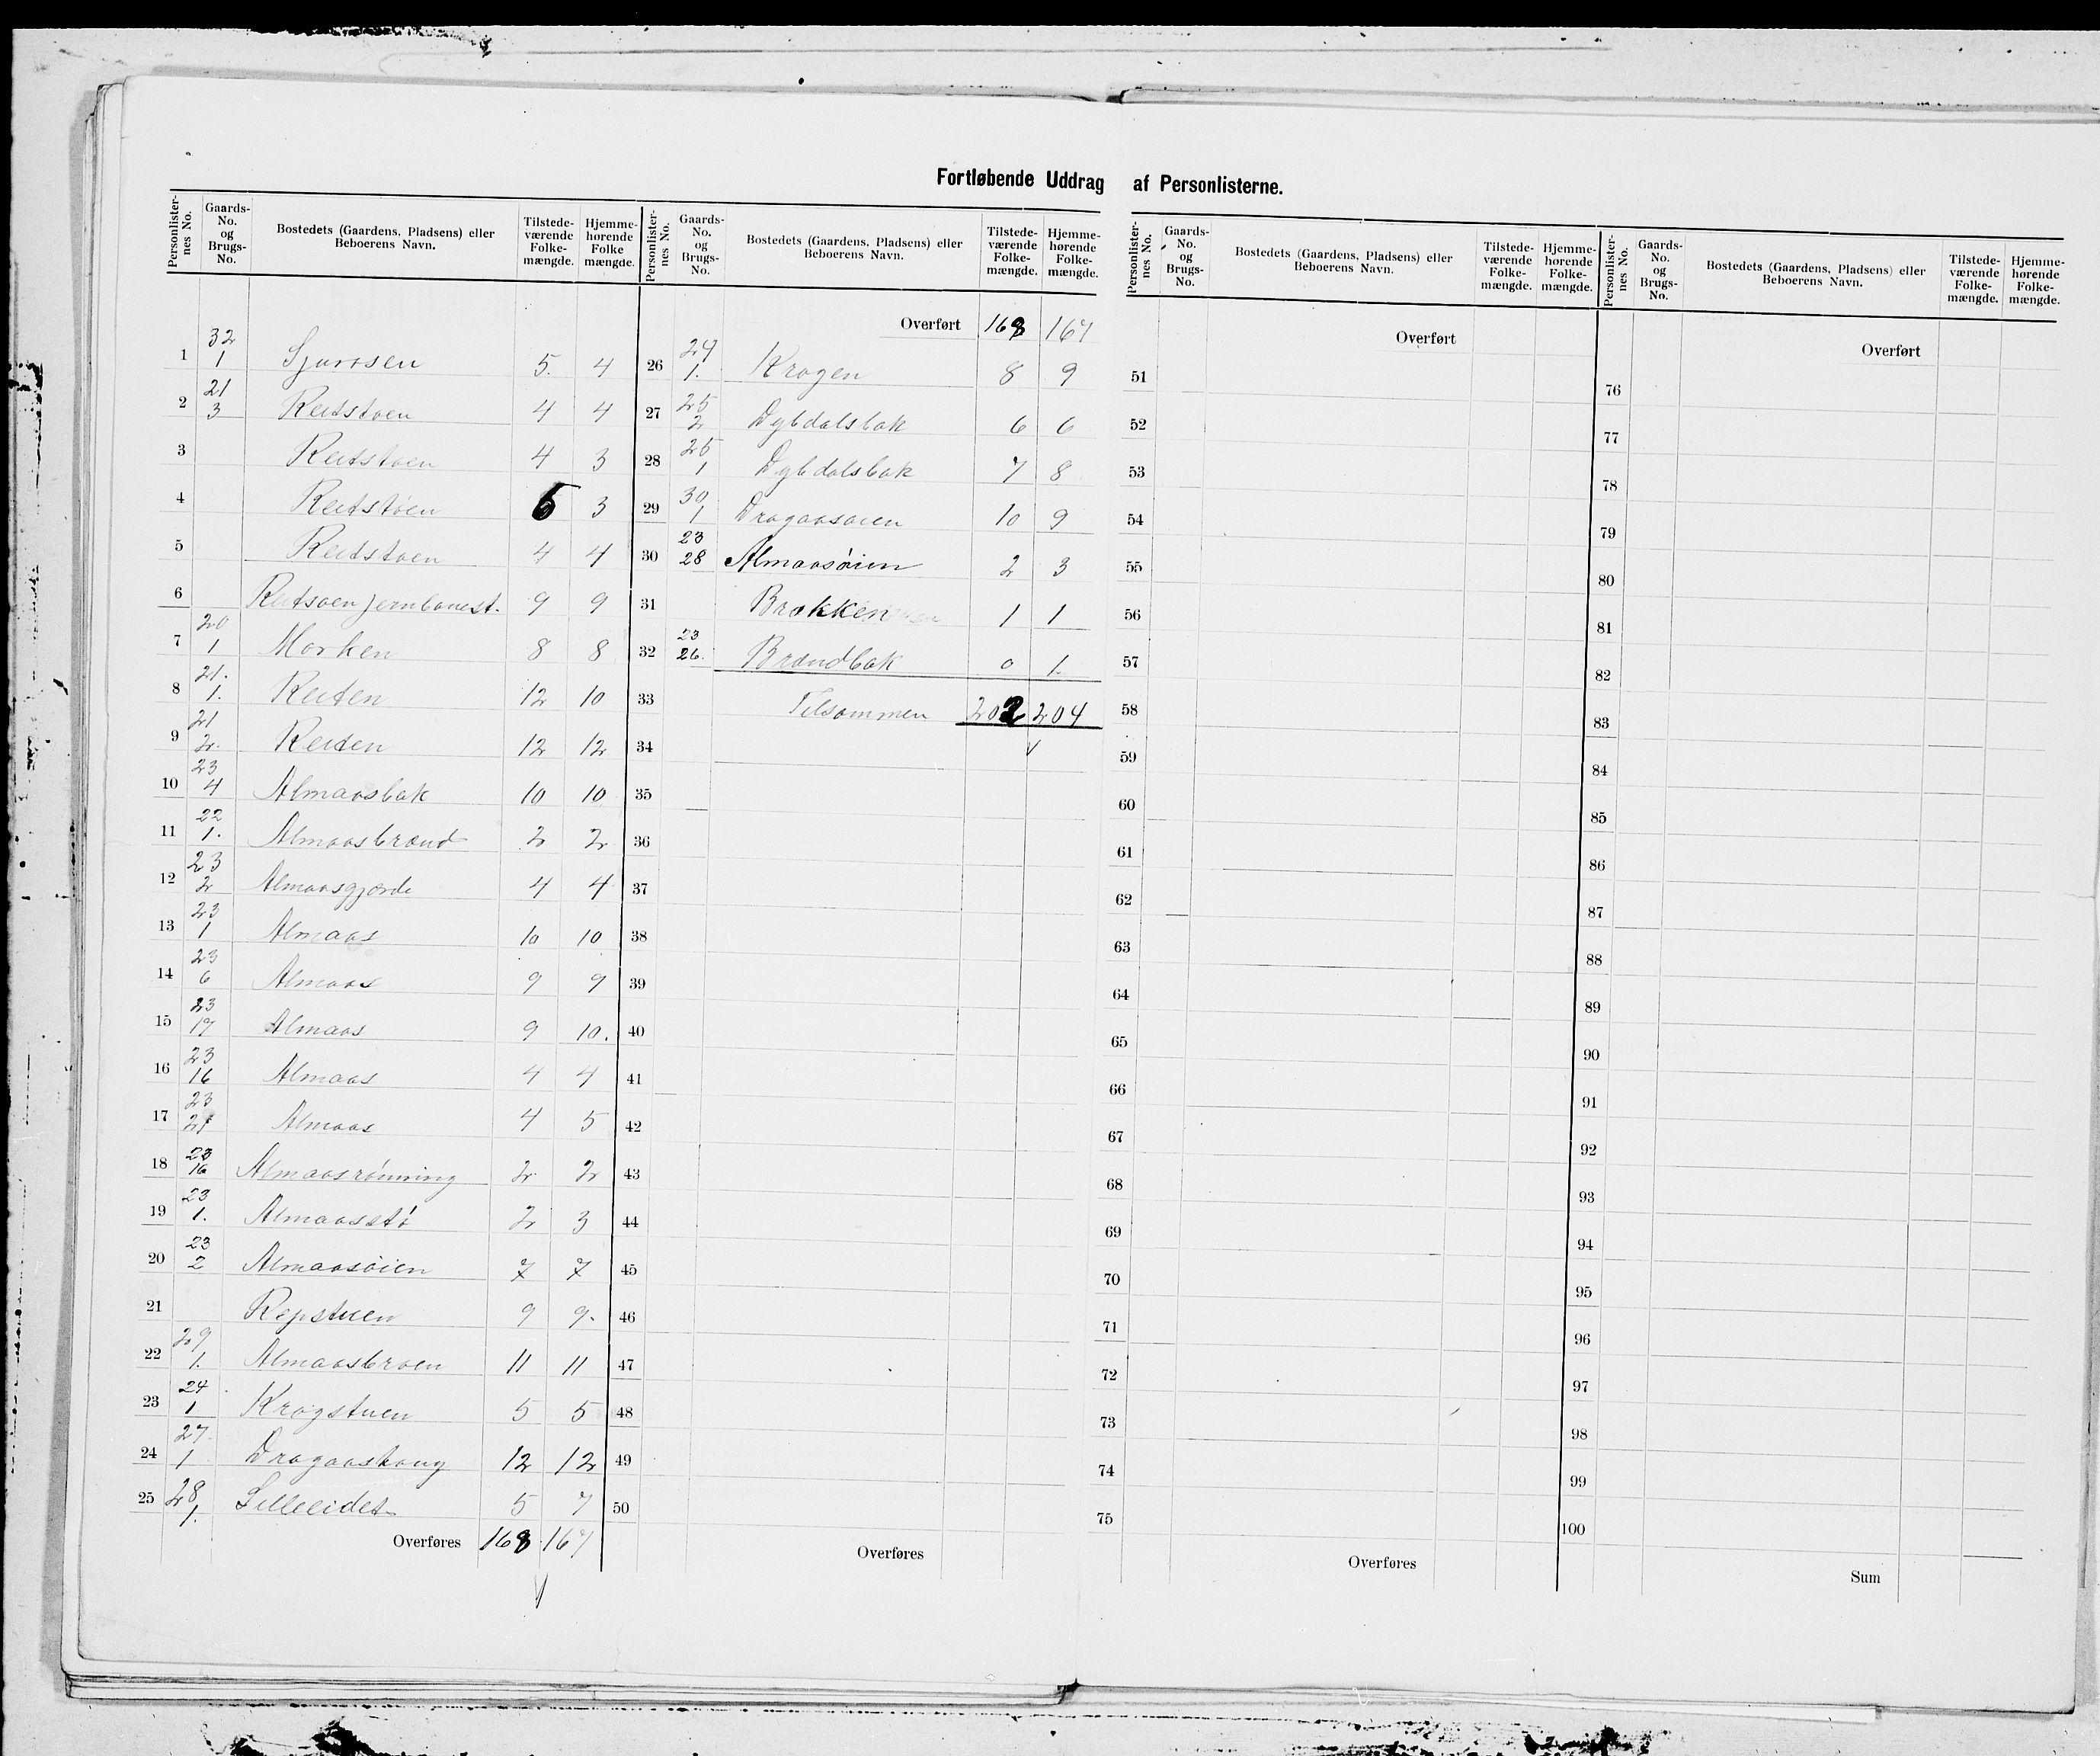 Fortløbende Uddrag af Personlisterne.
Personlister-nes No. | Gaards-No. og Brugs-No. | Bostedets (Gaardens, Pladsens) eller Beboerens Navn. | Tilstede-værende Folke-mængde. | Hjemme-hørende Folke mængde.
1 | 32/1 | | 5. | 4
2 | 21/3 | Reitstøen | 4 | 4
3 | | Reitstøen | 4 | 3
4 | | Reitstøen | 5 | 3
5 | | Reitstøen | 4 | 4
6 | | Reitsøen jernbanest. | 9 | 9
7 | 20/1 | Morken | 8 | 8
8 | 21./1. | Reiten | 12 | 10
9 | 21/2. | Reiten | 12 | 12
10 | 23/4 | Almaasbak | 10 | 10
11 | 22/1. | Almaasbrænd | 2 | 2
12 | 23/2 | Almaasgjærde | 4 | 4
13 | 23/1 | Almaas | 10 | 10
14 | 23/6 | Almaas | 9 | 9
15 | 23/17 | Almaas | 9 | 10.
16 | 23/16 | Almaas | 4 | 4
17 | 23/21 | Almaas | 4 | 5
18 | 23/16 | Almaasrønning | 2 | 2
19 | 23/1. | Almaasstø | 2 | 3
20 | 23/2 | Almaasøien | 7 | 7
21 | | Repstuen | 9 | 9.
22 | 29/1. | Almaasbroen | 11 | 11
23 | 24/1 | Krogstuen | 5 | 5
24 | 27./1 | Dragaashaug | 12 | 12
25 | 28/1. | Lilleeidet | 5 | 7
Overføres | 168 | 167
Personlister-nes No. | Gaards-No. og Brugs-No. | Bostedets (Gaardens, Pladsens) eller Beboerens Navn. | Tilstede-værende Folke-mængde. | Hjemme-hørende Folke-mængde.
Overført | 168 | 167
26 | 24/1. | Krogen | 8 | 9
27 | 25/2 | Dybdalsbak | 6 | 6
28 | 25/1 | Dybdalsbak | 7 | 8
29 | 30/1 | Dragaasøien | 10 | 9
30 | 23/28 | Almaasøien | 2 | 3
31 | | Brækken | 1 | 1
32 | 23/26. | Brændbak | 0 | 1.
33 | | Tilsammen | 202 | 204
34
35
36
37
38
39
40
41
42
43
44
45
46
47
48
49
50
Overføres
Personlister-nes No. | Gaards-No. og Brugs-No. | Bostedets (Gaardens, Pladsens) eller Beboerens Navn. | Tilstede-værende Folke-mængde. | Hjemme-hørende Folke-mængde.
Overført
51
52
53
54
55
56
57
58
59
60
61
62
63
64
65
66
67
68
69
70
71
72
73
74
75
Overføres
Personlister-nes No. | Gaards-No. og Brugs-No. | Bostedets (Gaardens, Pladsens) eller Beboerens Navn. | Tilstede-værende Folke-mængde. | Hjemme-hørende Folke-mængde.
Overført
76
77
78
79
80
81
82
83
84
85
86
87
88
89
90
91
92
93
94
95
96
97
98
99
100
Sum